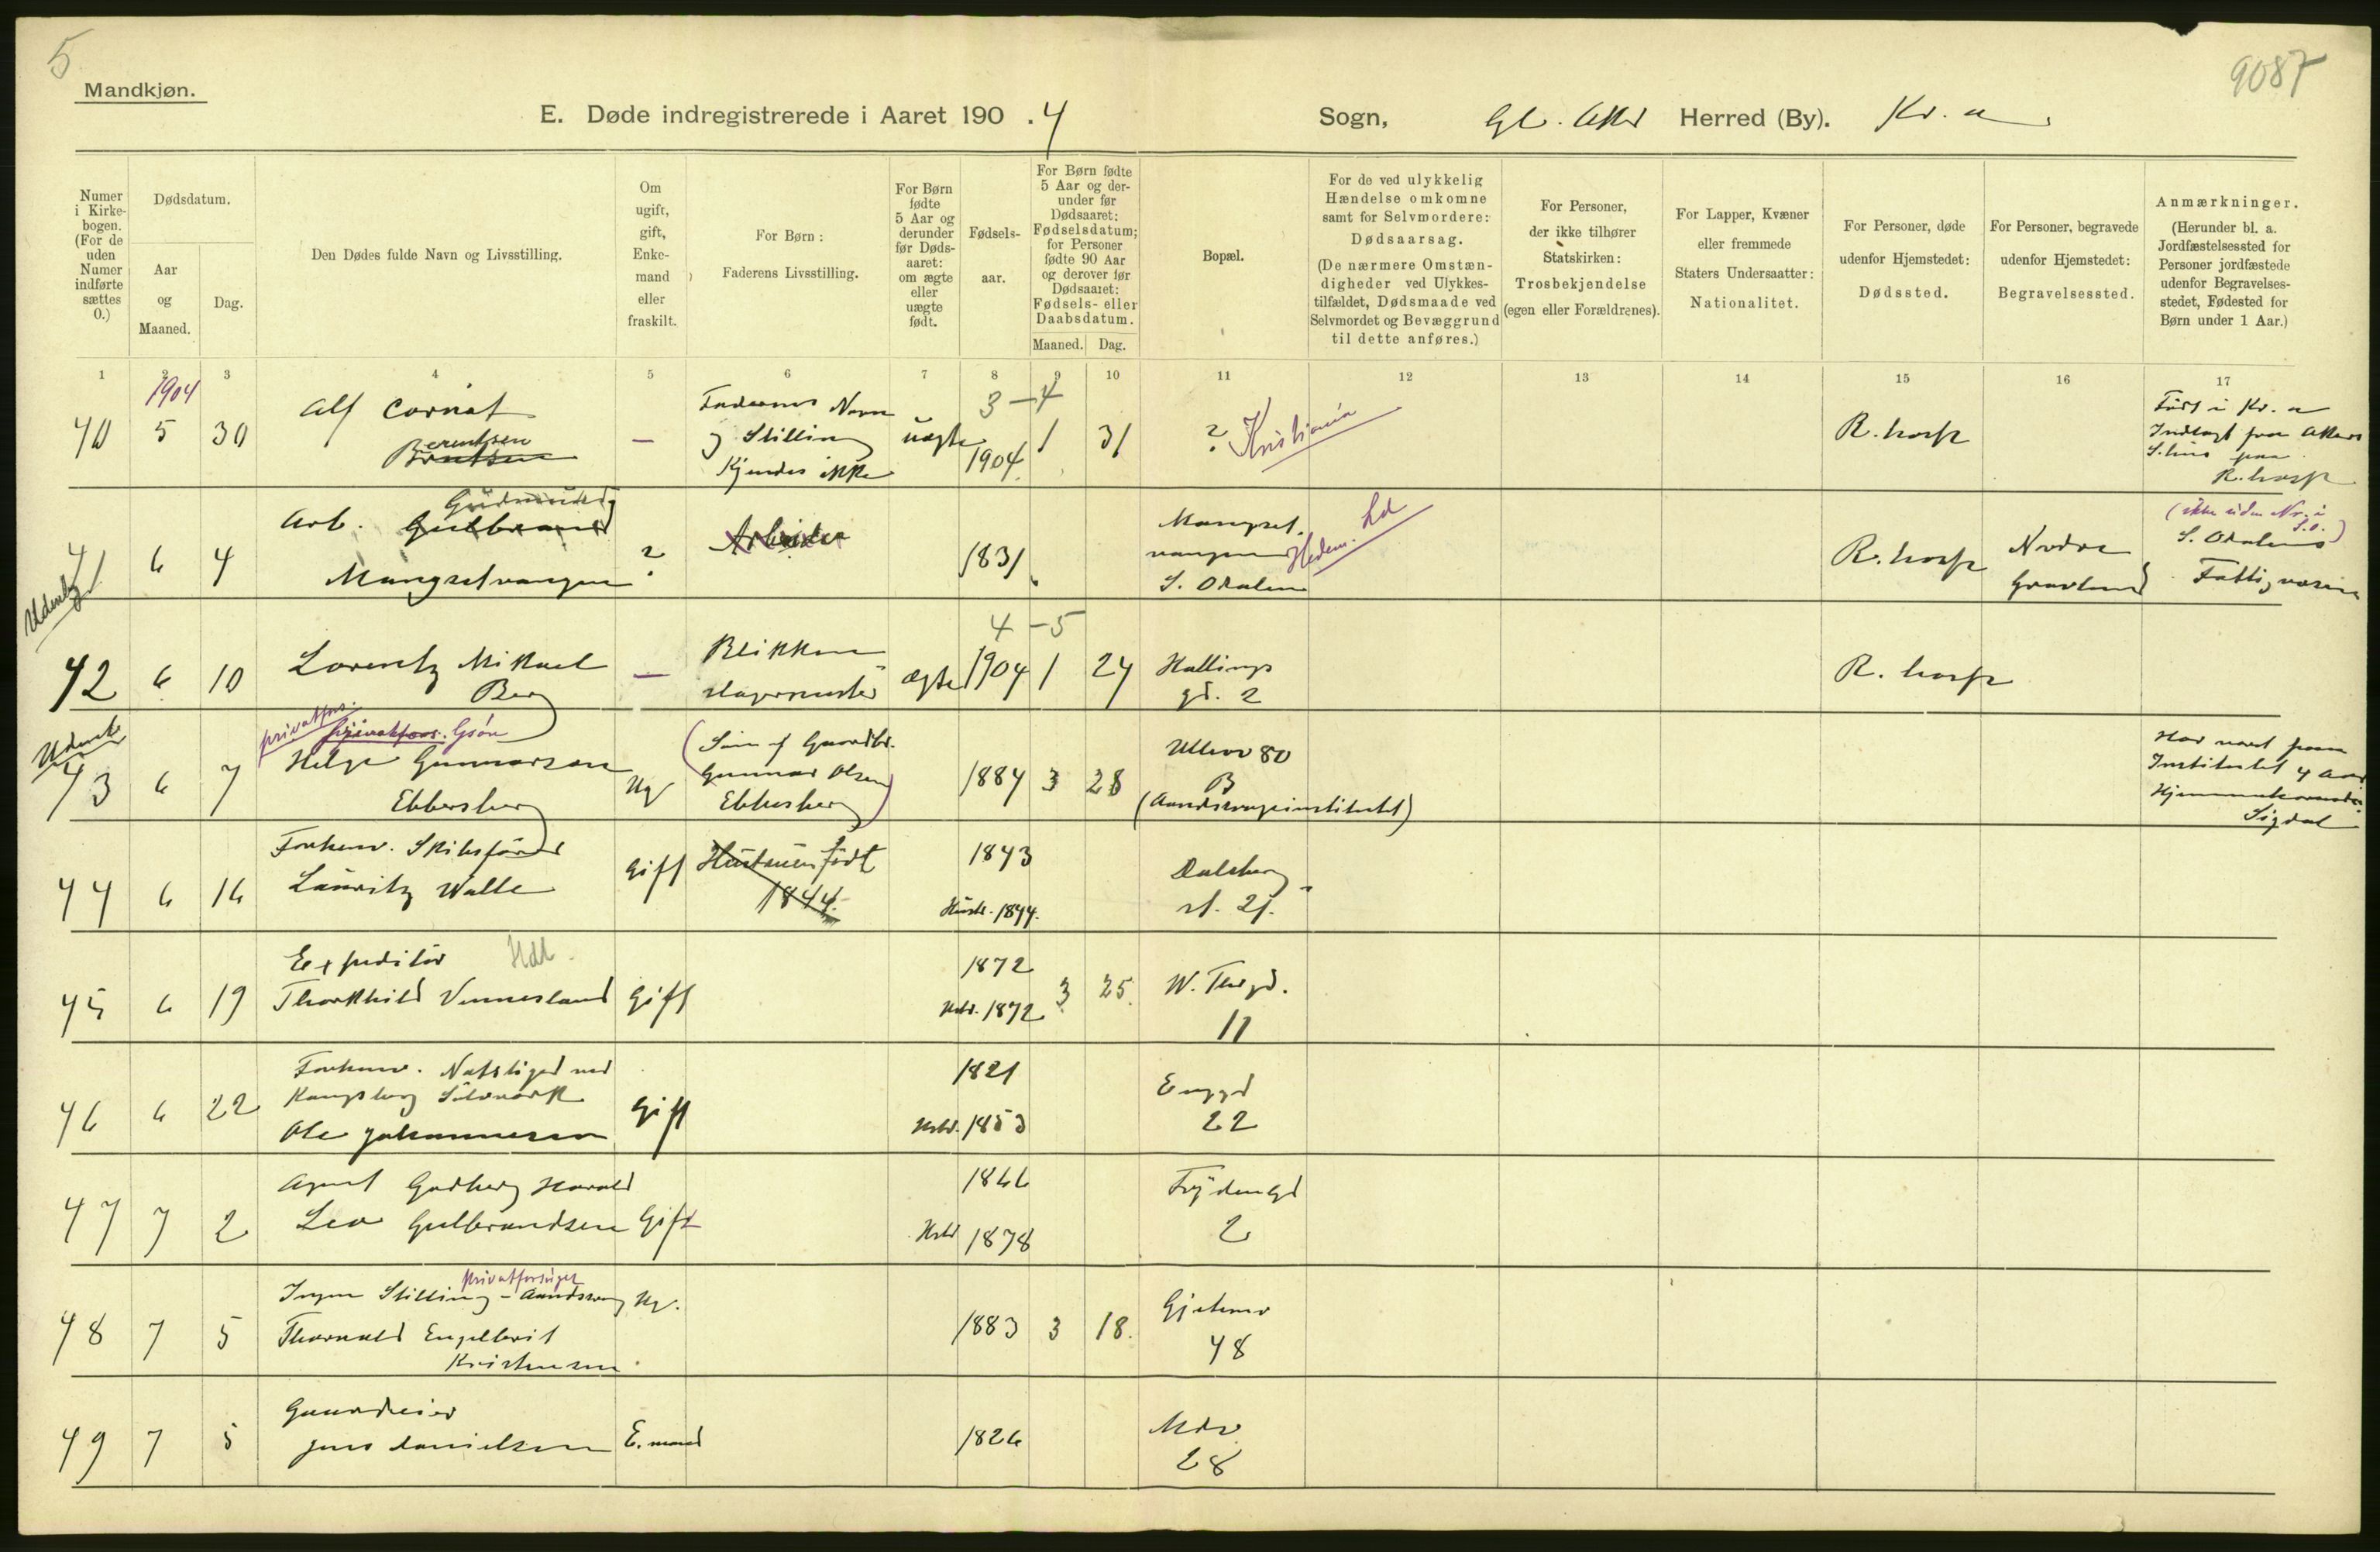 5
9087
Mandkjøn.
E. Døde indregistrerede i Aaret 190 . 4 Sogn, Gl. Aker Herred (By). Kr. a
Numer i Kirke-bogen. (For de uden Numer indførte sættes 0.)
Dødsdatum.
Aar og Maaned.
Dag.
Den Dødes fulde Navn og Livsstilling.
Om ugift, gift, Enke-mand eller fraskilt.
For Børn:
Faderens Livsstilling.
For Børn fødte 5 Aar og derunder før Døds-aaret: om ægte eller uægte født.
Fødsels-aar.
For Børn fødte 5 Aar og der-under før Dødsaaret: Fødselsdatum; for Personer fødte 90 Aar og derover før Dødsaaret: Fødsels- eller Daabsdatum.
Maaned. Dag.
Bopæl.
For de ved ulykkelig Hændelse omkomne samt for Selvmordere:
Dødsaarsag.
(De nærmere Omstæn-digheder ved Ulykkes-tilfældet, Dødsmaade ved Selvmordet og Bevæggrund til dette anføres.)
For Personer, der ikke tilhører Statskirken:
Trosbekjendelse
(egen eller Forældrenes).
For Lapper, Kvæner eller fremmede Staters Undersaatter:
Nationalitet.
For Personer, døde udenfor Hjemstedet:
Dødssted.
For Personer, begravede udenfor Hjemstedet:
Begravelsessted.
Anmærkninger.
(Herunder bl. a. Jordfæstelsessted for Personer jordfæstede udenfor Begravelses-stedet, Fødested for Børn under 1 Aar.)
1 2 3 4 5 6 7 8 9 10 11 12 13 14 15 16 17
1904
3 - 4
40 5 30 Alf Cornat Berentsen Berntsen — Faderens Navn og Stilling Kjendes ikke uægte 1904 1 31 ? Kristiania R. hosp
Født i Kr. a
Indlagt fra Akers
S.hus paa
R. hosp
Udenby
41 6 4 Arb. Gulbrand Gudmund
Mangselvangen ? Arbeider 1831 Mangsel.
vangen Hedem. Ld
S. Odalen R. hosp Nordre
Gravlund
(ikke uden Nr. i S.O.)
S. Odalens
Fattigvæsen
4 - 5
42 6 10 Lorentz Mikael
Berg — Blikken-
slagermester ægte 1904 1 24 Hallings
gd. 2 R. hosp
Udenb
43 6 7 privatfors. privatfors. Gsøn
Helge Gunnarsen
Ebbersberg Ug (Søn af Gaardbr.
Gunnar Olsen
Ebbesberg) 1884 3 28 Ullevv 80
B
(Aandssvageinstitutet)
Har været paa
Institutet 4 Aar
Sigdal
44 6 16 Forhenv. Skibsfører
Lauritz Walle Gift Hustruen født
1844. 1843
Hustr. 1844. Dalsberg
st. 21.
45 6 19 Expeditør Hdl.
Thorkhild Vennesland Gift 1872
Hstr. 1872 3 25. W. Thsgd.
11
46 6 22 Forhenv. Natstiger ved
Kongsberg Sølvværk
Ole Johannesen Gift 1821
Hstr. 1853 Enggd
22
47 7 2 Agent Godberg Harald
Leo Gulbrandsen Gift 1866
Hstr 1878 Frydengd
2
48 7 5 privatforsørget
Ingen Stilling - Aandssvag
Thorvald Engelbrit
Kristensen Ug. 1883 3 18. Gjetemv
48
49 7 5 Gaardeier
Jens Danielsen E.mand 1826 Mdv
28